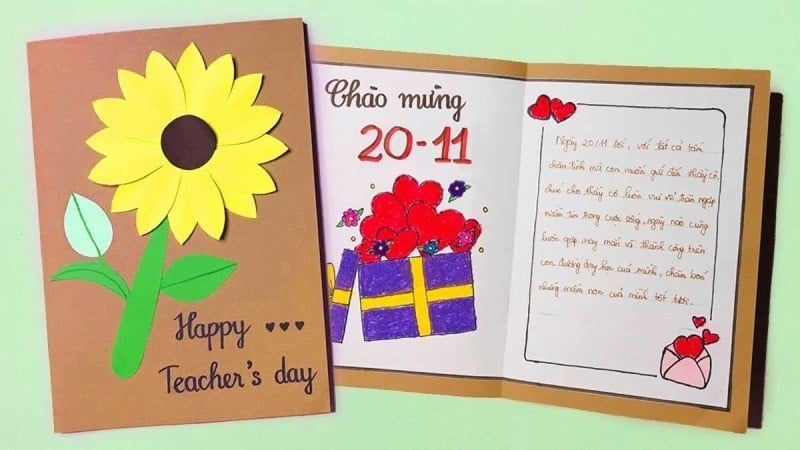 Happy
Teacher's day
Chào mừng
20-11
Ngày 20/11 tới, với tất cả tấm
chân tình mà con muốn gửi đến thầy cô,
chúc cho thầy cô luôn vui vẻ tràn ngập
niềm tin trong cuộc sống, ngày nào cũng
luôn gặp may mắn và thành công trên
con đường dạy học của mình, chăm bón
những mầm non của mình tốt tươi.